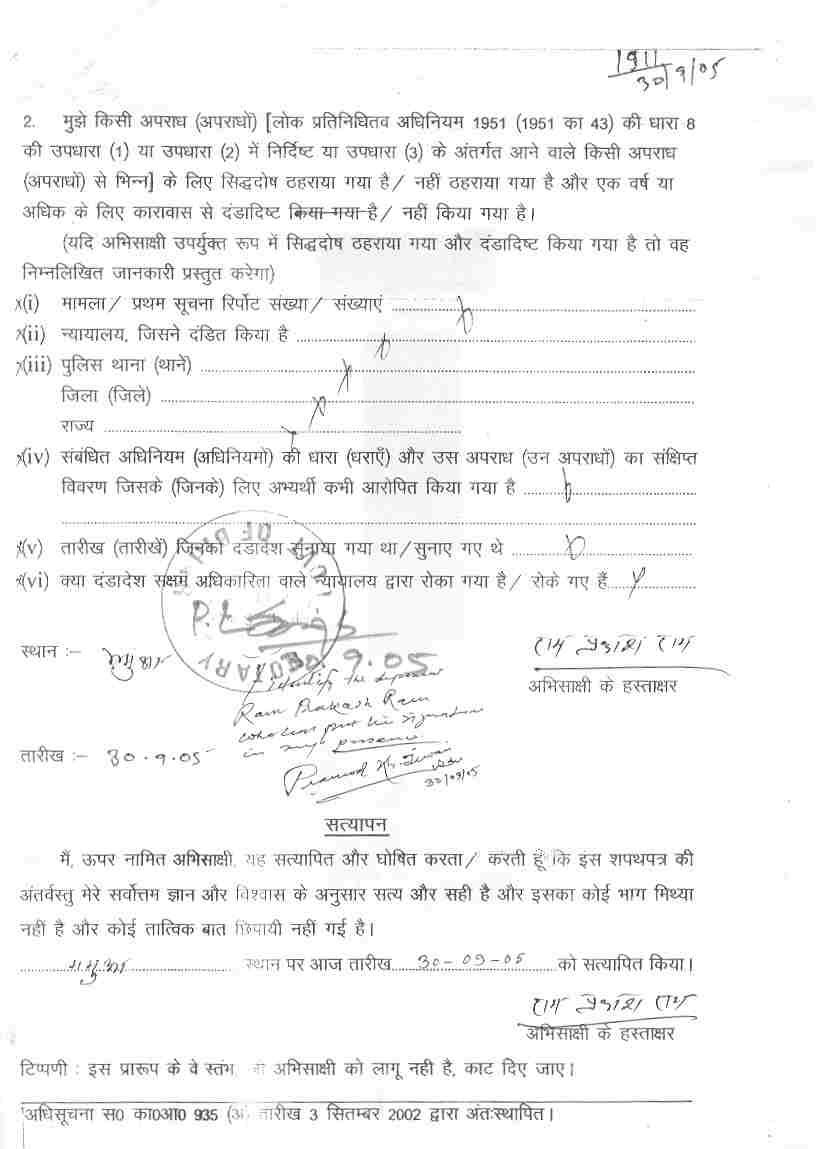 1911
30/9/05
2. मुझे किसी अपराध (अपराधों) [लोक प्रतिनिधितव अधिनियम 1951 (1951 का 43) की धारा 8
की उपधारा (1) या उपधारा (2) में निर्दिष्ट या उपधारा (3) के अंतर्गत आने वाले किसी अपराध
(अपराधों) से भिन्न] के लिए सिद्धदोष ठहराया गया है/ नहीं ठहराया गया है और एक वर्ष या
अधिक के लिए कारावास से दंडादिष्ट किया गया है/ नहीं किया गया है।
(यदि अभिसाक्षी उपर्युक्त रूप में सिद्धदोष ठहराया गया और दंडादिष्ट किया गया है तो वह
निम्नलिखित जानकारी प्रस्तुत करेगा)
(i) मामला/ प्रथम सूचना रिर्पोट संख्या/ संख्याएं
(ii) न्यायालय, जिसने दंडित किया है
(iii) पुलिस थाना (थाने)
जिला (जिले)
राज्य
(iv) संबंधित अधिनियम (अधिनियमों) की धारा (धराएँ) और उस अपराध (उन अपराधों) का संक्षिप्त
विवरण जिसके (जिनके) लिए अभ्यर्थी कभी आरोपित किया गया है
(v) तारीख (तारीखें) जिनको दंडादेश सुनाया गया था/सुनाए गए थे
(vi) क्या दंडादेश सक्षम अधिकारिता वाले न्यायालय द्वारा रोका गया है/ रोके गए हैं
30.9.05
स्थान :-
राम प्रकाश राम
अभिसाक्षी के हस्ताक्षर
I identify the deponent
Ram Prakash Ram
who has put his signature
in my presence
तारीख :- 30.9.05
30/09/05
सत्यापन
मैं, ऊपर नामित अभिसाक्षी, यह सत्यापित और घोषित करता/ करती हूँ कि इस शपथपत्र की
अंतर्वस्तु मेरे सर्वोत्तम ज्ञान और विश्वास के अनुसार सत्य और सही है और इसका कोई भाग मिथ्या
नहीं है और कोई तात्विक बात छिपायी नहीं गई है।
स्थान पर आज तारीख 30-09-05 को सत्यापित किया।
राम प्रकाश राम
अभिसाक्षी के हस्ताक्षर
टिप्पणी : इस प्रारूप के वे स्तंभ अभिसाक्षी को लागू नही है, काट दिए जाए।
अधिसूचना स0 का0आ0 935 (अ) तारीख 3 सितम्बर 2002 द्वारा अंतःस्थापित।